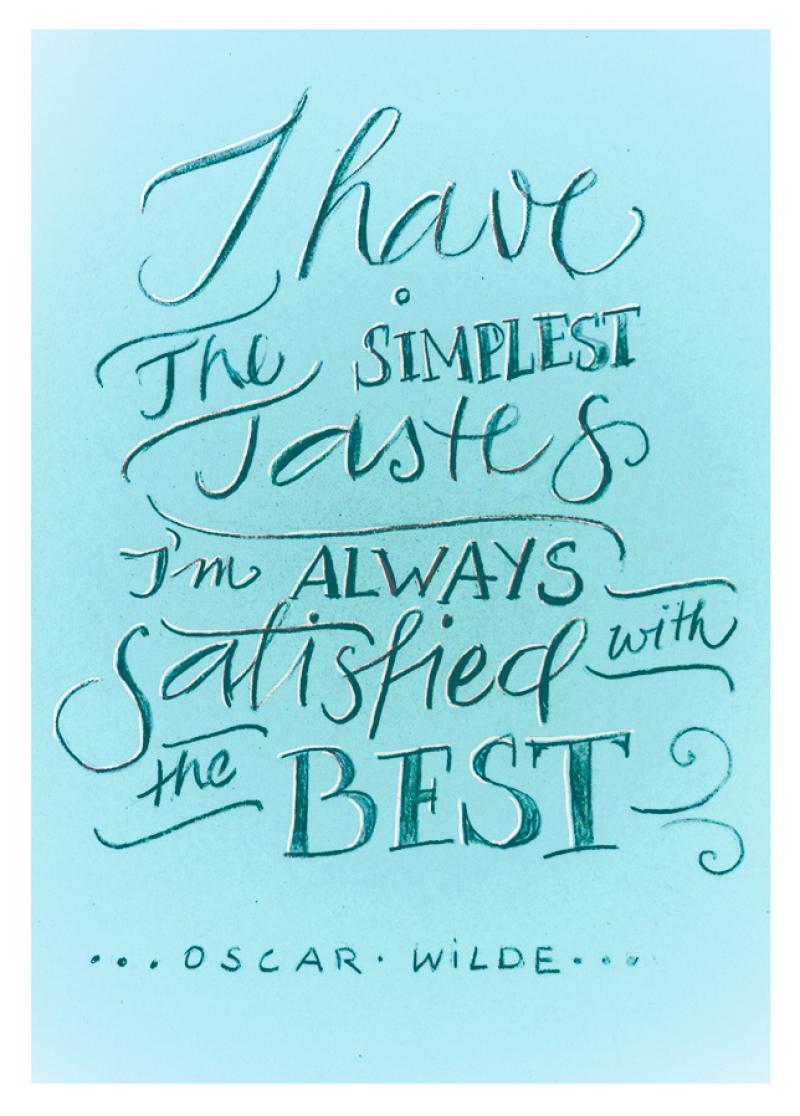 I have
The SiMPLEST
Tastes
I'm ALWAYS
satisfied with
the BEST
...OSCAR· WiLDE....